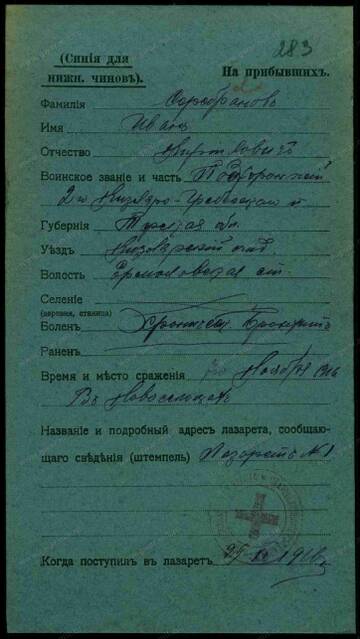 283
(Синія для
нижн. чиновъ).
На прибывшихъ.
Фамилія
Имя Иванъ
Отчество
Воинское званіе и часть
2го Кизляро-Гребенского п
Губернія Терская обл.
Уѣздъ Кизлярский отд
Волость Ермоловская ст.
Селеніе
(деревня, станица)
Боленъ Хроническ. Бронхитъ
Раненъ
Время и мѣсто сраженія Ноября 1916
Въ Новоселицахъ
Названіе и подробный адресъ лазарета, сообщаю-
щаго свѣдѣнія (штемпель) Лазаретъ №1
Когда поступилъ въ лазаретъ 1916